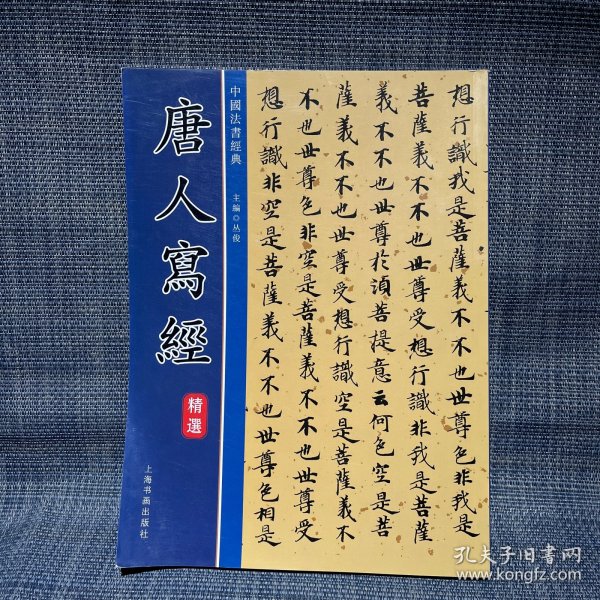 想行識我是菩薩義不不也世尊色非我是
菩薩義不不也世尊受想行識非我是菩薩
義不不也世尊於湏菩提意云何色空是菩
薩義不不也世尊受想行識空是菩薩義不
不也世尊色非空是菩薩義不不也世尊受
想行識非空是菩薩義不不也世尊色相是
中國法書經典
主編◎丛俊
唐人寫經
精選
上海书画出版社
孔夫子旧書网
www.kongfz.com